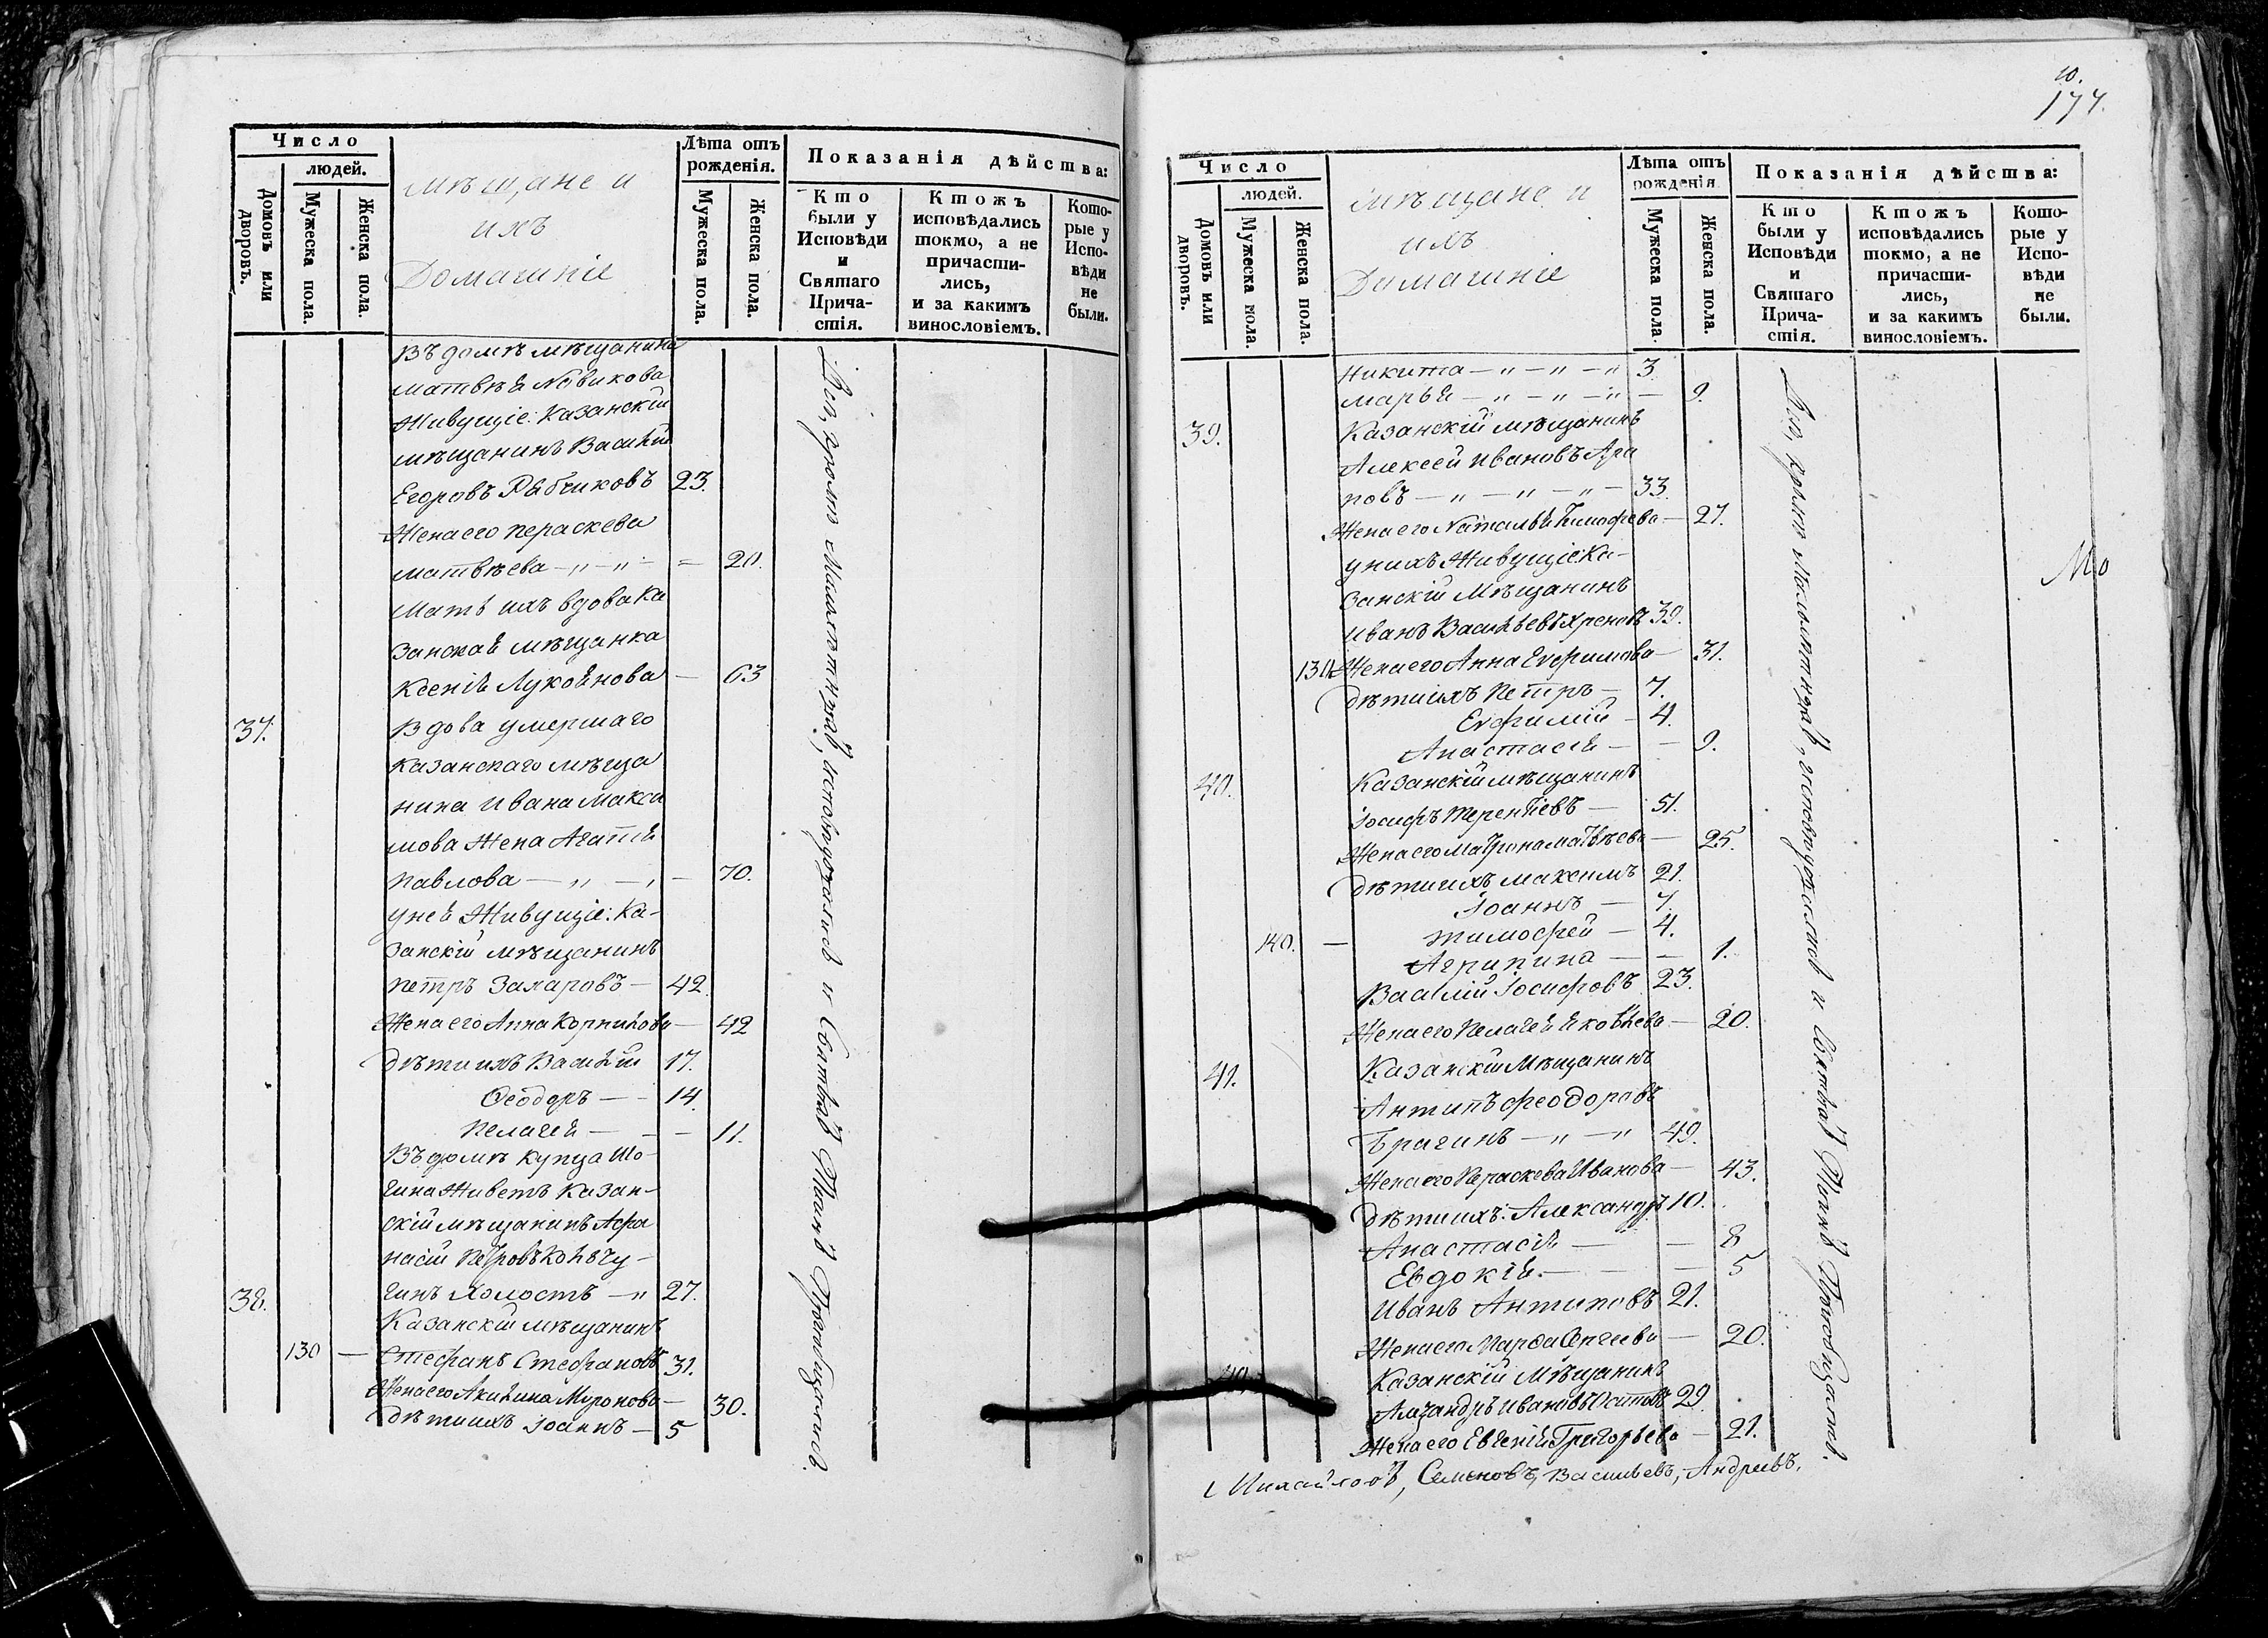 Число
людей.
Домовъ или дворовъ.
Мужеска пола.
Женска пола.
мѣщане и
ихъ
Домашніе
Лѣта отъ рожденія.
Мужеска пола.
Женска пола.
Показанія дѣйства:
Кто были у Исповѣди и Святаго Причастія.
Ктожъ исповѣдались токмо, а не причастились, и за какимъ винословіемъ.
Которые у Исповѣди не были.
Въ домѣ мѣщанина
матвѣя Новикова
Живущіе: Казанскій
мѣщанинъ Василій
Егоровъ Рябчиковъ 23.
Жена его Параскева
матвѣева — " — " — = 20.
Мать ихъ вдова Ка
занская мѣщанка
Ксенія Лукоянова — 63
37. Вдова умершаго
Казанскаго мѣща
нина Ивана Макси
мова Жена Агапія
Павлова — " — , — 70.
у ней Живущіе: Ка-
занскій мѣщанинъ
Петръ Захаровъ — 42.
Жена его Анна Корнилова — 42
дѣти ихъ Василій 17.
Ѳеодоръ — — 14.
Пелагея — — — 11.
Въ домѣ купца Шо-
гина Живетъ Казан-
скій мѣщанинъ Афа
насій Петровъ Кольчу-
гинъ Холостъ — " 27.
38. Казанскій мѣщанинъ
130 — Стефанъ Стефановъ 31.
Жена его Акилина Миронова — 30.
дѣти ихъ Іоаннъ — 5
Всѣ, кромѣ Малолѣтнихъ, исповѣдались и Святыхъ Таинъ Пріобщались.
10.
177.
Число
людей.
Домовъ или дворовъ.
Мужеска пола.
Женска пола.
мѣщане и
ихъ
Домашніе
Лѣта отъ рожденія.
Мужеска пола.
Женска пола.
Показанія дѣйства:
Кто были у Исповѣди и Святаго Причастія.
Ктожъ исповѣдались токмо, а не причастились, и за какимъ винословіемъ.
Которые у Исповѣди не были.
Никита — " — " — " 3.
Марья — " — " — " — 9.
39. Казанскій мѣщанинъ
Алексей Ивановъ
повъ — " — " — " — 33.
Жена его Наталья Тимофеева — 27.
у нихъ Живущіе: Ка-
занскій Мѣщанинъ
Иванъ Васильевъ Хреновъ 39.
130. Жена его Анна Ефимова — 31.
дѣти ихъ Петръ — 7.
Ефимій — 4.
Анастасія — — 9.
40. Казанскій мѣщанинъ
Іосифъ Терентіевъ — 51.
Жена его Матрона Матвѣева — 25.
дѣти ихъ Максимъ 21.
Іоаннъ — 7.
140. — Тимофей — 4.
Агрипина — — 1.
Василій Іосифовъ 23.
Жена его Пелагея Яковлева — 20.
41. Казанскій Мѣщанинъ
Антипъ Феодоровъ
Брагинъ — " — " 49.
Жена его Параскева Иванова — 43.
дѣти ихъ: Александръ 10.
Анастасія — — 8
Евдокія. — — 5
Иванъ Антиповъ 21.
Жена его Марѳа Сергѣева — 20.
Казанскій Мѣщанинъ
Александръ Ивановъ 29.
Жена его Евгенія Григорьева — 21.
Всѣ, кромѣ Малолѣтнихъ, исповѣдались и Святыхъ Таинъ Пріобщались.
Михайловъ, Семеновъ, Васильевъ, Андреевъ.